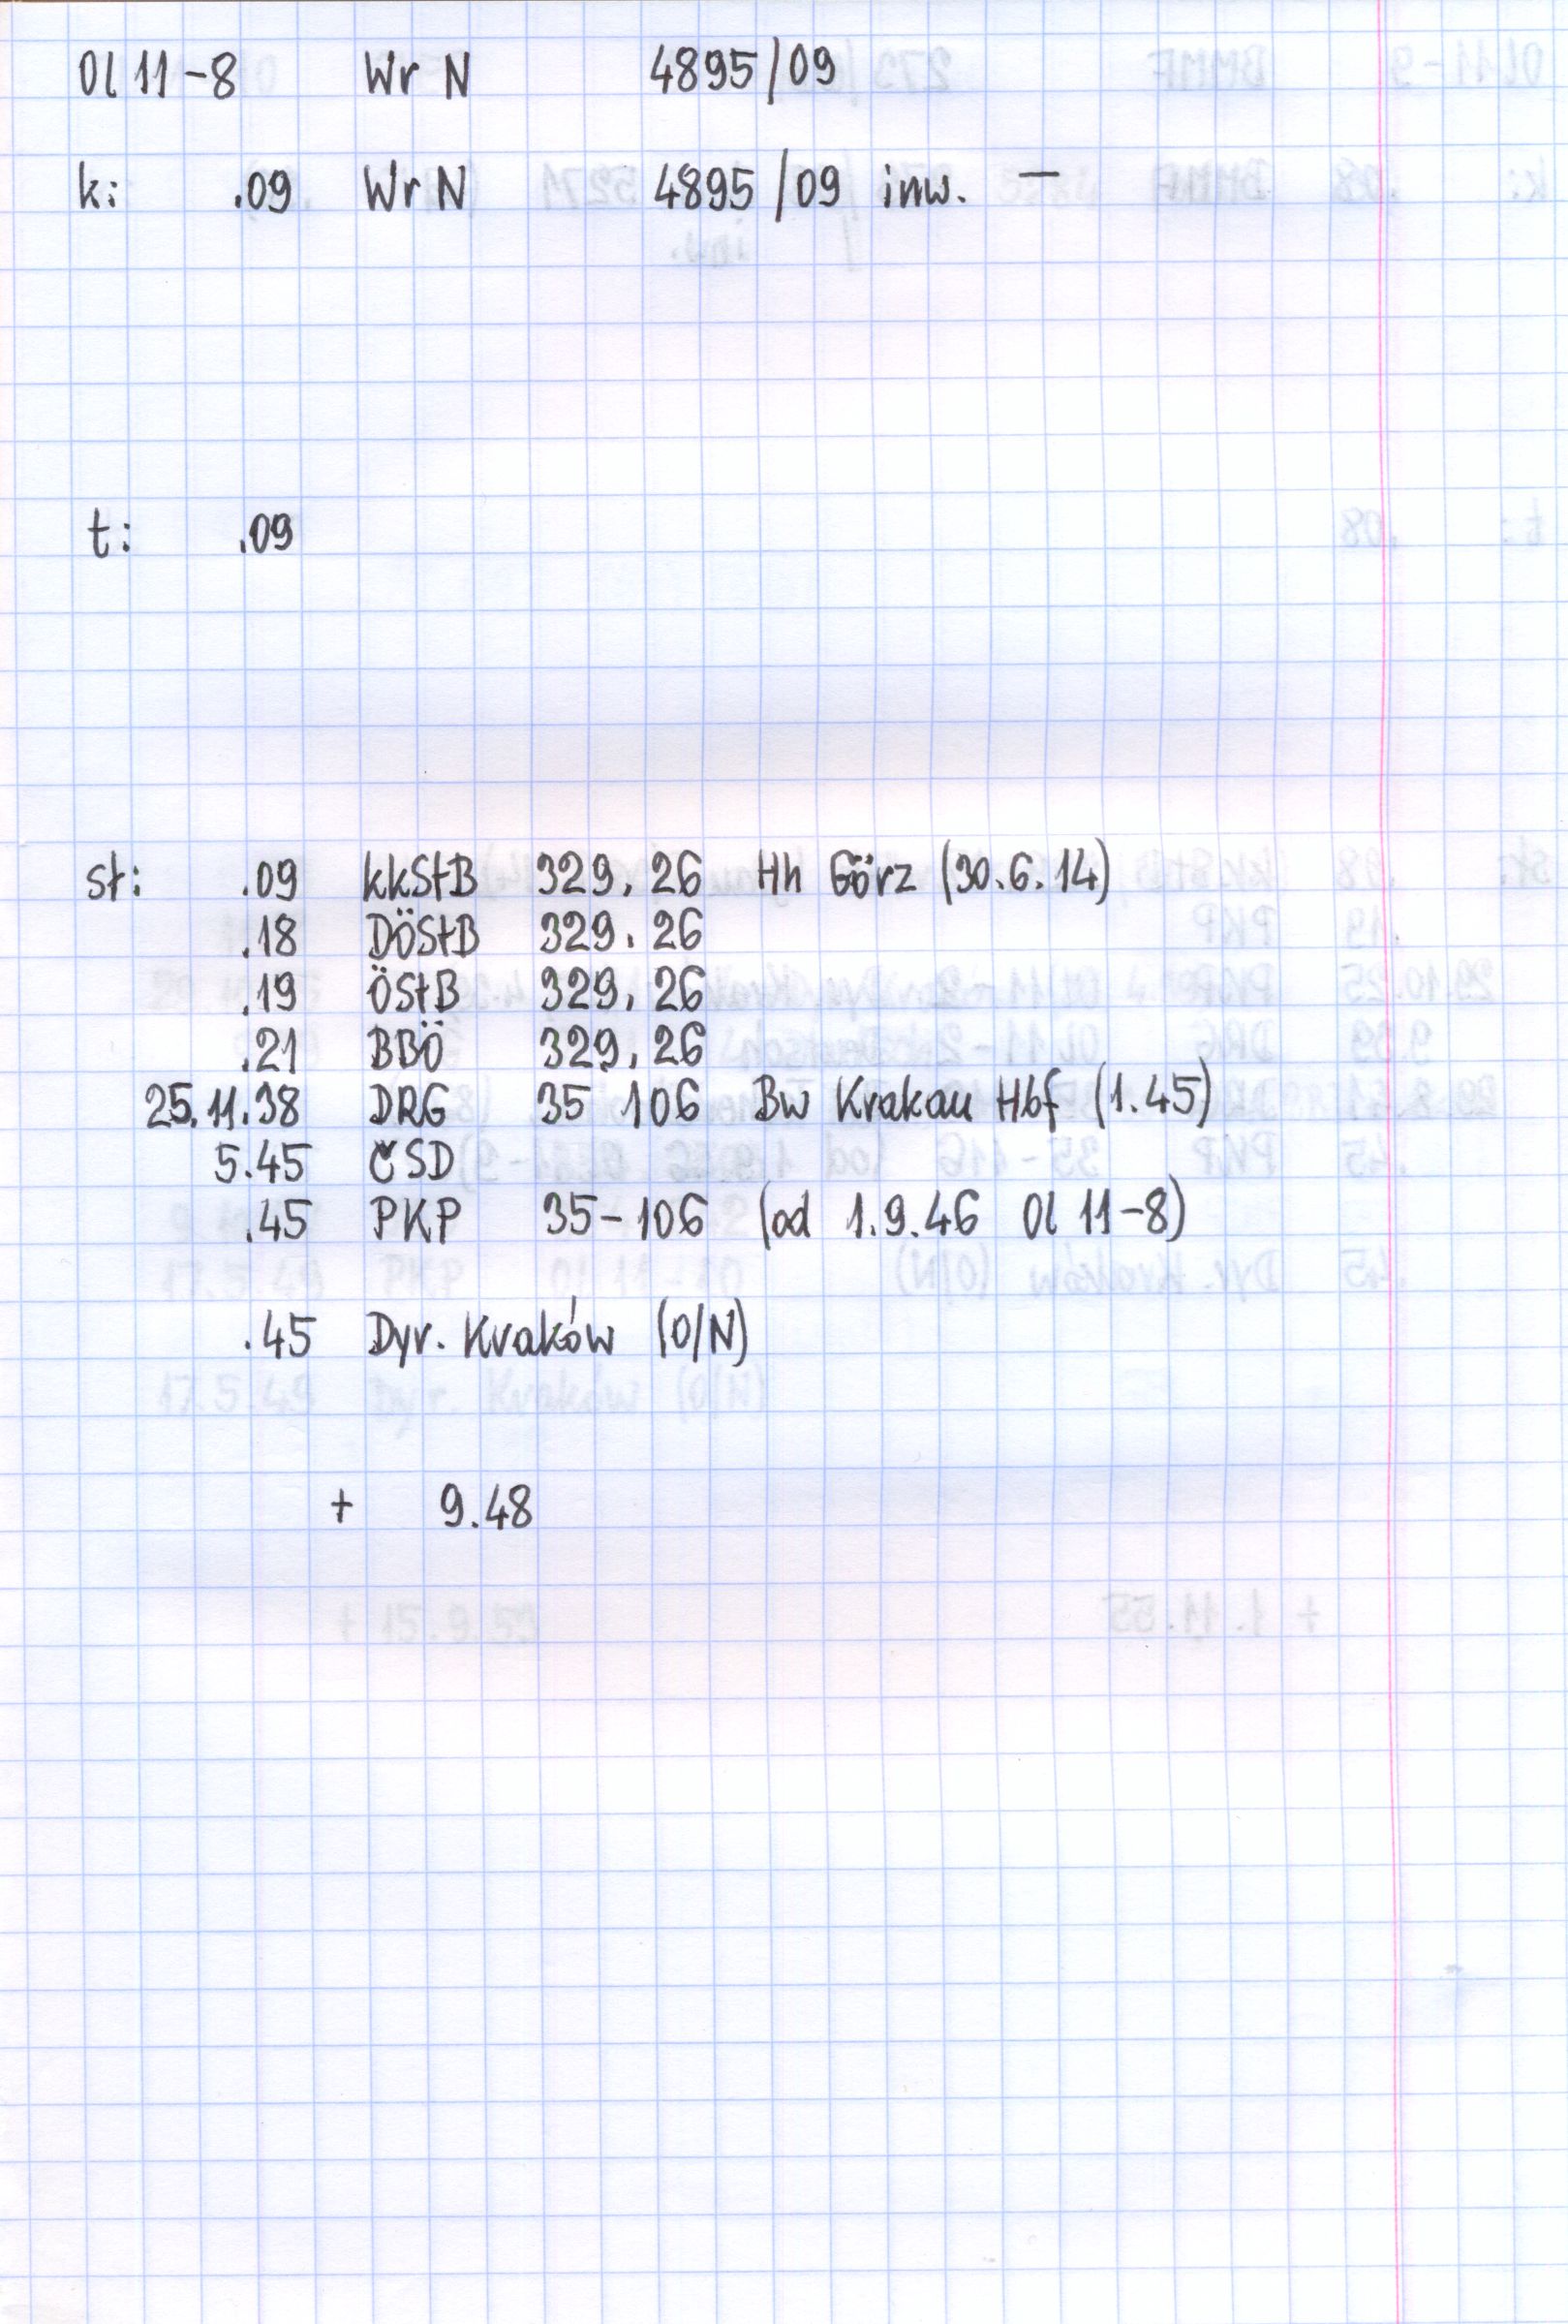 Ol 11-8 Wr N 4895/09
k: .09 Wr N 4895/09 inw. —
t: .09
st: .09 kkStB 329.26 Hh Görz (30.6.14)
.18 DÖStB 329.26
.19 ÖStB 329.26
.21 BBÖ 329.26
25.11.38 DRG 35 106 Bw Krakau Hbf (1.45)
5.45 ČSD
.45 PKP 35-106 (od 1.9.46 Ol 11-8)
.45 Dyr. Kraków (O/N)
+ 9.48